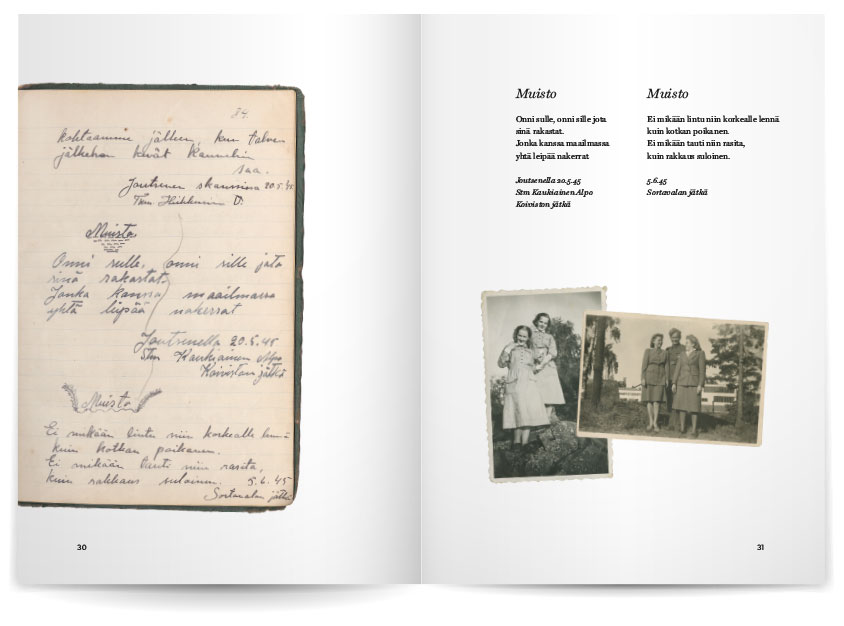 84.
kohtaamme jälleen, kun talven
jälkehen kevät
saa.
20.5.45
Muisto
Onni sulle, onni sille jota
sinä rakastat.
Jonka kanssa maailmassa
yhtä leipää nakerrat
Joutsenella 20.5.45
Stm Kaukiainen Alpo
Koiviston jätkä
Muisto
Ei mikään lintu niin korkealle lennä
kuin kotkan poikanen.
Ei mikään tauti niin rasita,
kuin rakkaus suloinen. 5.6.45
Sortavalan jätkä
30
Muisto
Onni sulle, onni sille jota
sinä rakastat.
Jonka kanssa maailmassa
yhtä leipää nakerrat
Joutsenella 20.5.45
Stm Kaukiainen Alpo
Koiviston jätkä
Muisto
Ei mikään lintu niin korkealle lennä
kuin kotkan poikanen.
Ei mikään tauti niin rasita,
kuin rakkaus suloinen.
5.6.45
Sortavalan jätkä
31